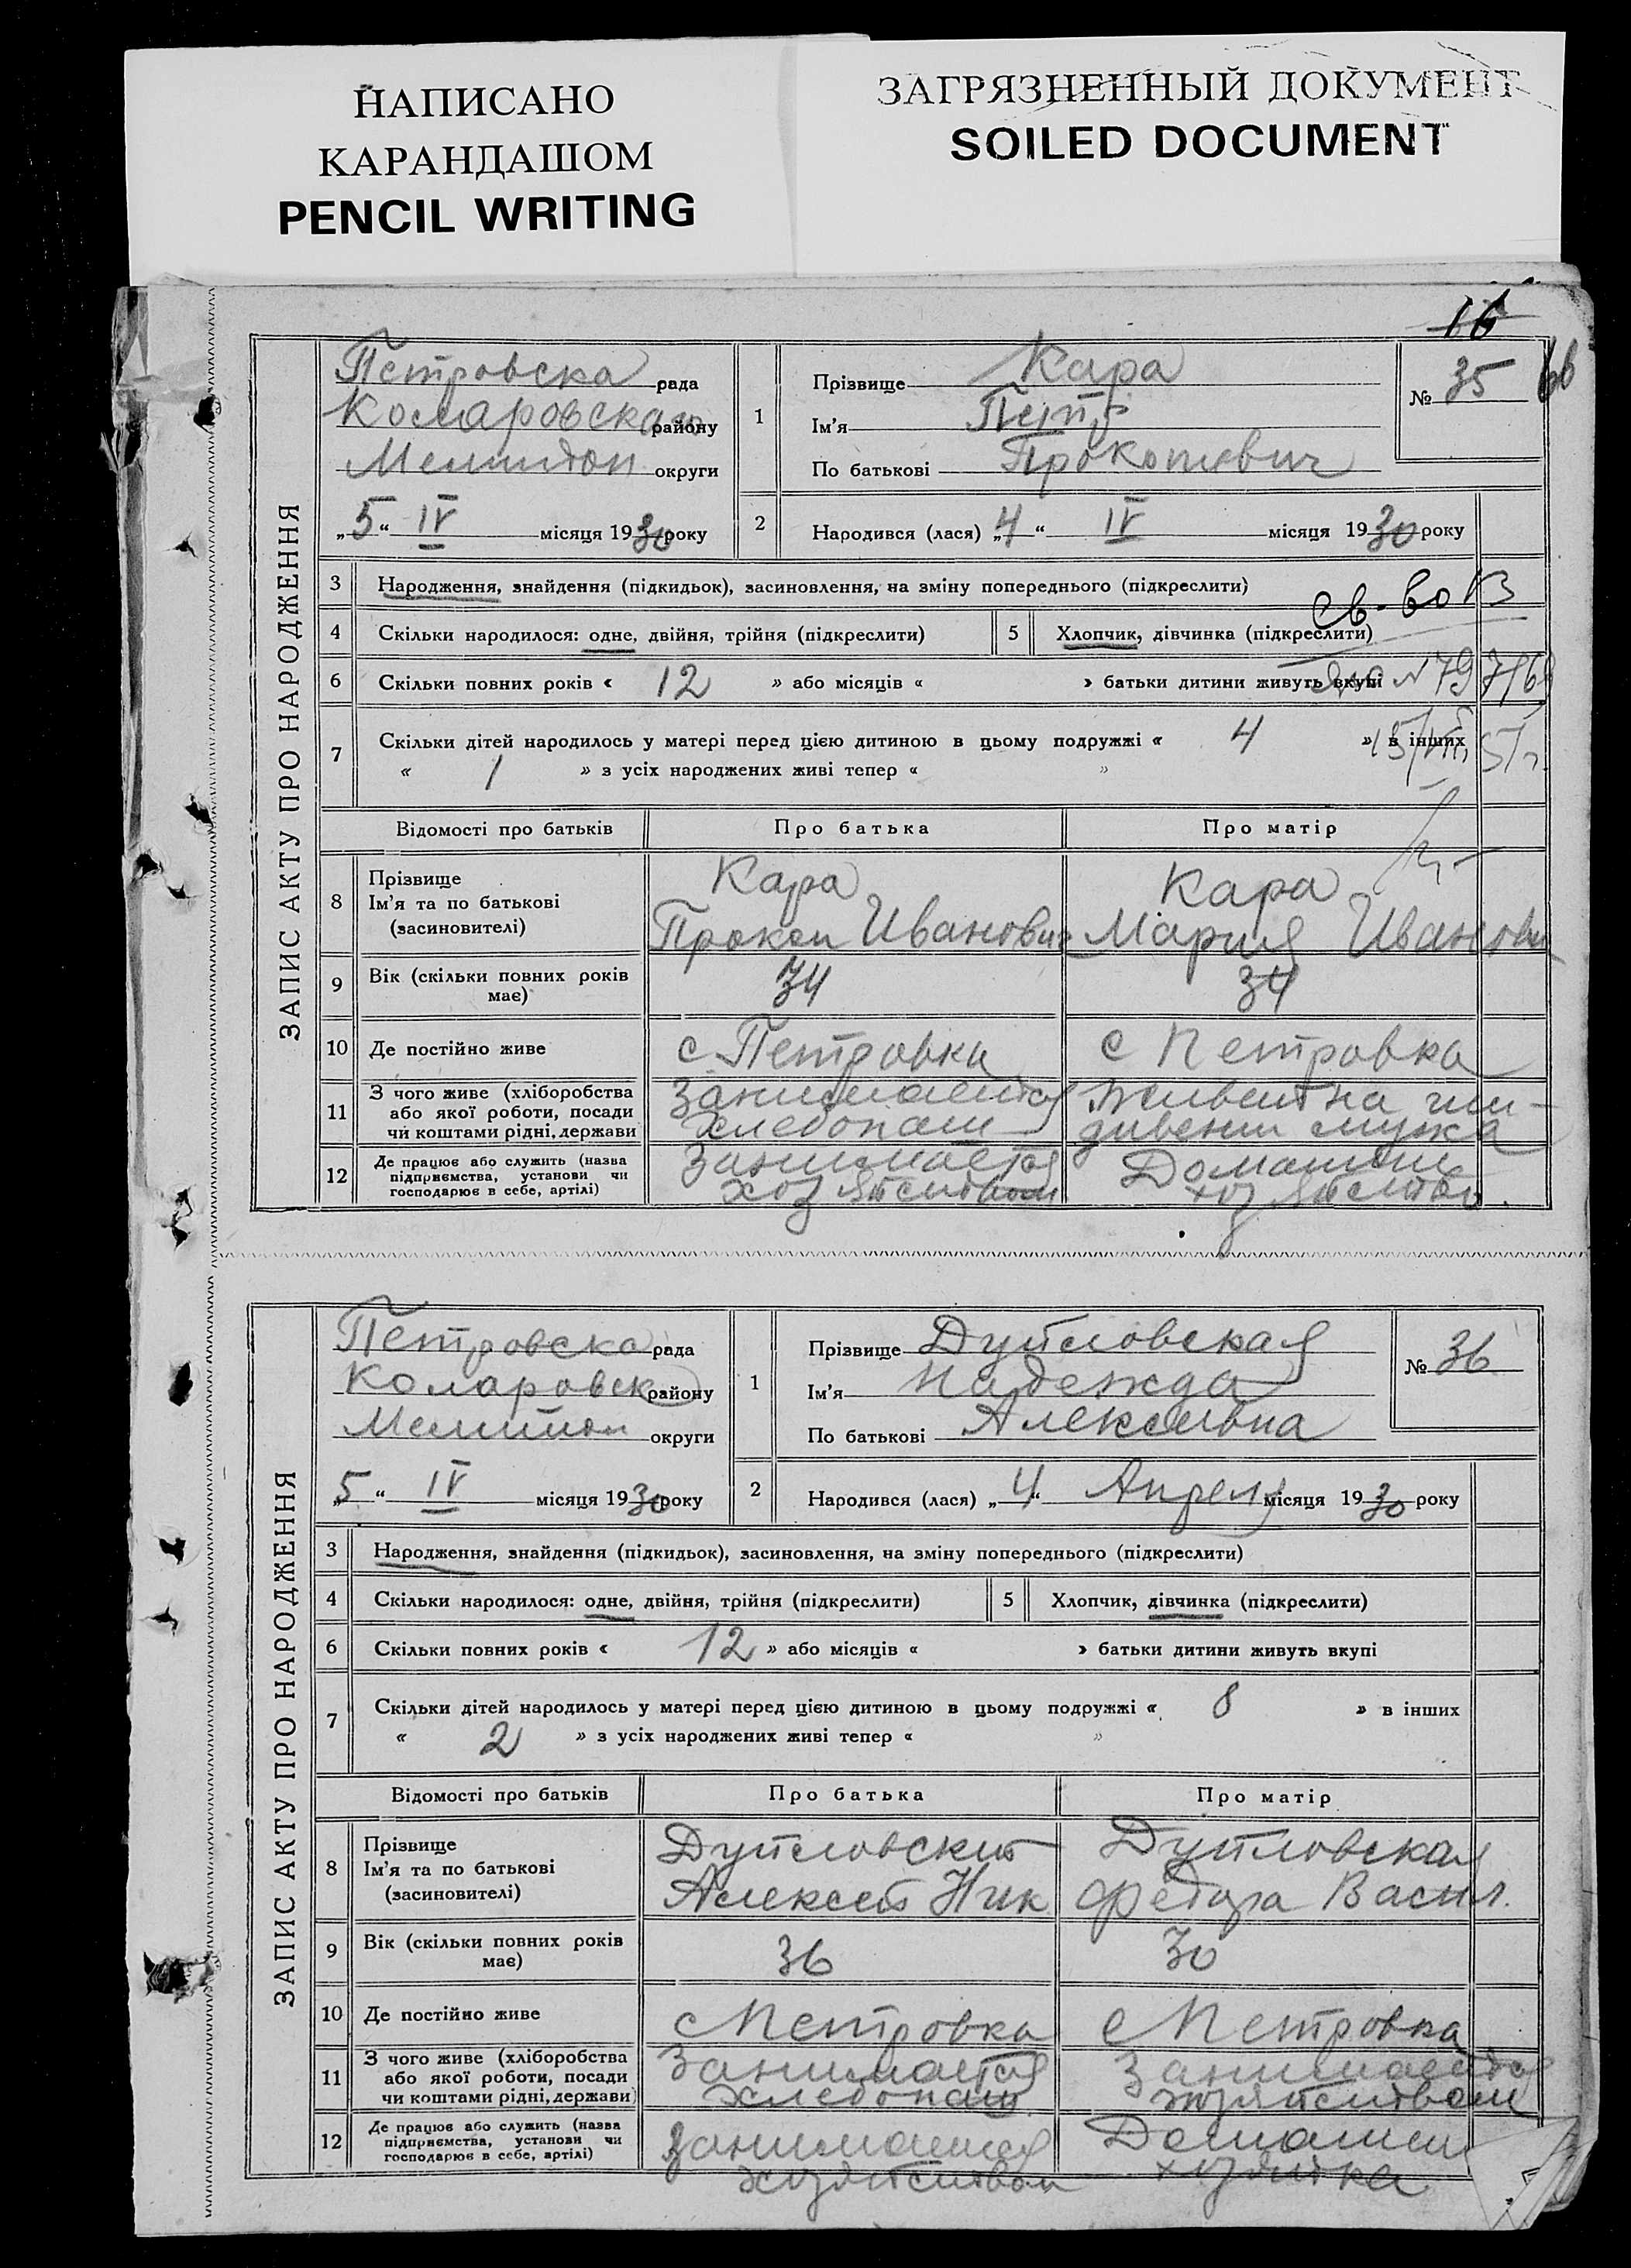 НАПИСАНО
КАРАНДАШОМ
PENCIL WRITING
ЗАГРЯЗНЕННЫЙ ДОКУМЕНТ
SOILED DOCUMENT
16
ЗАПИС АКТУ ПРО НАРОДЖЕННЯ
Петровска рада
района
Мелитоп округи
„5“ IV місяця 1930 року
1 Прізвище Кара
Ім'я Петр
По батькові Прокопиевич
№ 35
66
2 Народився (лася) „4“ IV місяця 1930 року
3 Народження, знайдення (підкидьок), засиновлення, на зміну попереднього (підкреслити)
Св-во
4 Скільки народилося: одне, двійня, трійня (підкреслити) 5 Хлопчик, дівчинка (підкреслити)
6 Скільки повних років « 12 » або місяців « » батьки дитини живуть вкупі
7 Скільки дітей народилось у матері перед цією дитиною в цьому подружжі « 4 » в інших
« 1 » з усіх народжених живі тепер « »
Відомості про батьків Про батька Про матір
8 Прізвище Ім'я та по батькові (засиновителі)
Кара
Прокоп Иванович
Кара
Мария Иванови
9 Вік (скільки повних років має) 34 34
10 Де постійно живе с. Петровка с Петровка
11 З чого живе (хліборобства або якої роботи, посади чи коштами рідні, держави
Занимается
хлебопаш
Живет на ижи-
дивении мужа
12 Де працює або служить (назва підприємства, установи чи господарює в себе, артілі)
Занимается
хозяйством
Домашнее
хозяйство
ЗАПИС АКТУ ПРО НАРОДЖЕННЯ
Петровска рада
Коларовск району
Мелитоп округи
„5“ IV місяця 1930 року
1 Прізвище Дутловская
Ім'я Надежда
По батькові Алексеевна
№ 36
2 Народився (лася) „4“ Апреля місяця 1930 року
3 Народження, знайдення (підкидьок), засиновлення, на зміну попереднього (підкреслити)
4 Скільки народилося: одне, двійня, трійня (підкреслити) 5 Хлопчик, дівчинка (підкреслити)
6 Скільки повних років « 12 » або місяців « » батьки дитини живуть вкупі
7 Скільки дітей народилось у матері перед цією дитиною в цьому подружжі « 8 » в інших
« 2 » з усіх народжених живі тепер « »
Відомості про батьків Про батька Про матір
8 Прізвище Ім'я та по батькові (засиновителі)
Дутловский
Алексей Ник
Дутловская
Васил.
9 Вік (скільки повних років має) 36 30
10 Де постійно живе с Петровка с Петровка
11 З чого живе (хліборобства або якої роботи, посади чи коштами рідні, держави)
Занимается
хлебопаш
Занимается
хозяйством
12 Де працює або служить (назва підприємства, установи чи господарює в себе, артілі)
Занимается
хозяйством
Домашн
хозяйка